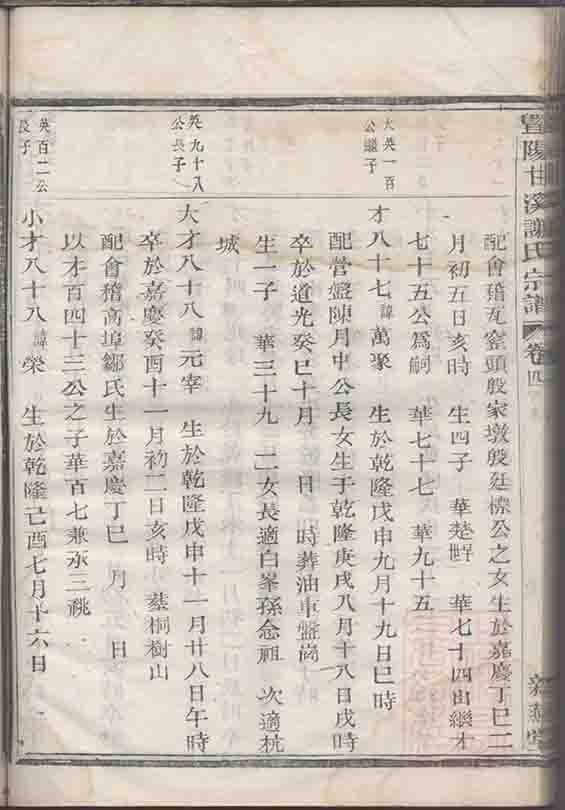 豐陽甘溪謝氏宗譜 卷四
配會稽瓦窰頭殷家墩殷廷樑公之女生於嘉慶丁巳二
月初五日亥時 生四子 華楚 華七十四出繼才
七十五公爲嗣 華七十七 華九十五
大英一百
公繼子
才八十七諱萬聚 生於乾隆戊申九月十九日巳時
配管盤陳月中公長女生于乾隆庚戌八月十八日戌時
卒於道光癸巳十月 日 時葬油車盤崗
生一子 華三十九 二女長適白峯孫念祖 次適杭
城
英九十八
公長子
大才八十八諱元宰 生於乾隆戊申十一月廿八日午時
卒於嘉慶癸酉十一月初二日亥時 葬桐樹山
配會稽高埠鄒氏生於嘉慶丁巳 月 日
以才百四十三公之子華百七兼承三祧
英百二公
長子
小才八十八諱榮 生於乾隆己酉七月十六日